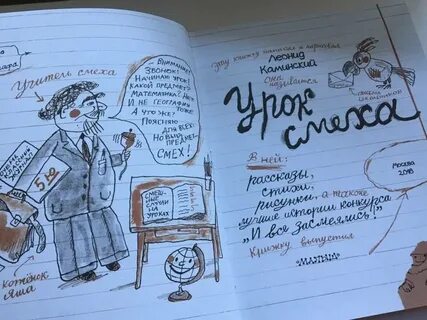 Учитель смеха
— Внимание!
Звонок!
Начинаю урок!
Какой предмет?
Математика? Нет!
И не география
тоже.
А что же?
Поясняю
для всех:
Новый
предмет —
СМЕХ!
5-Ю
Смеш-
ные
случаи
на
уроках
Котёнок
Яша
Эту книжку написал и нарисовал
Леонид
Каминский
она
называется
Урок
смеха
В ней:
рассказы,
стихи,
рисунки, а также
лучшие истории конкурса
"И все засмеялись!"
Книжку выпустил
"МАЛЫШ"
Москва
2018